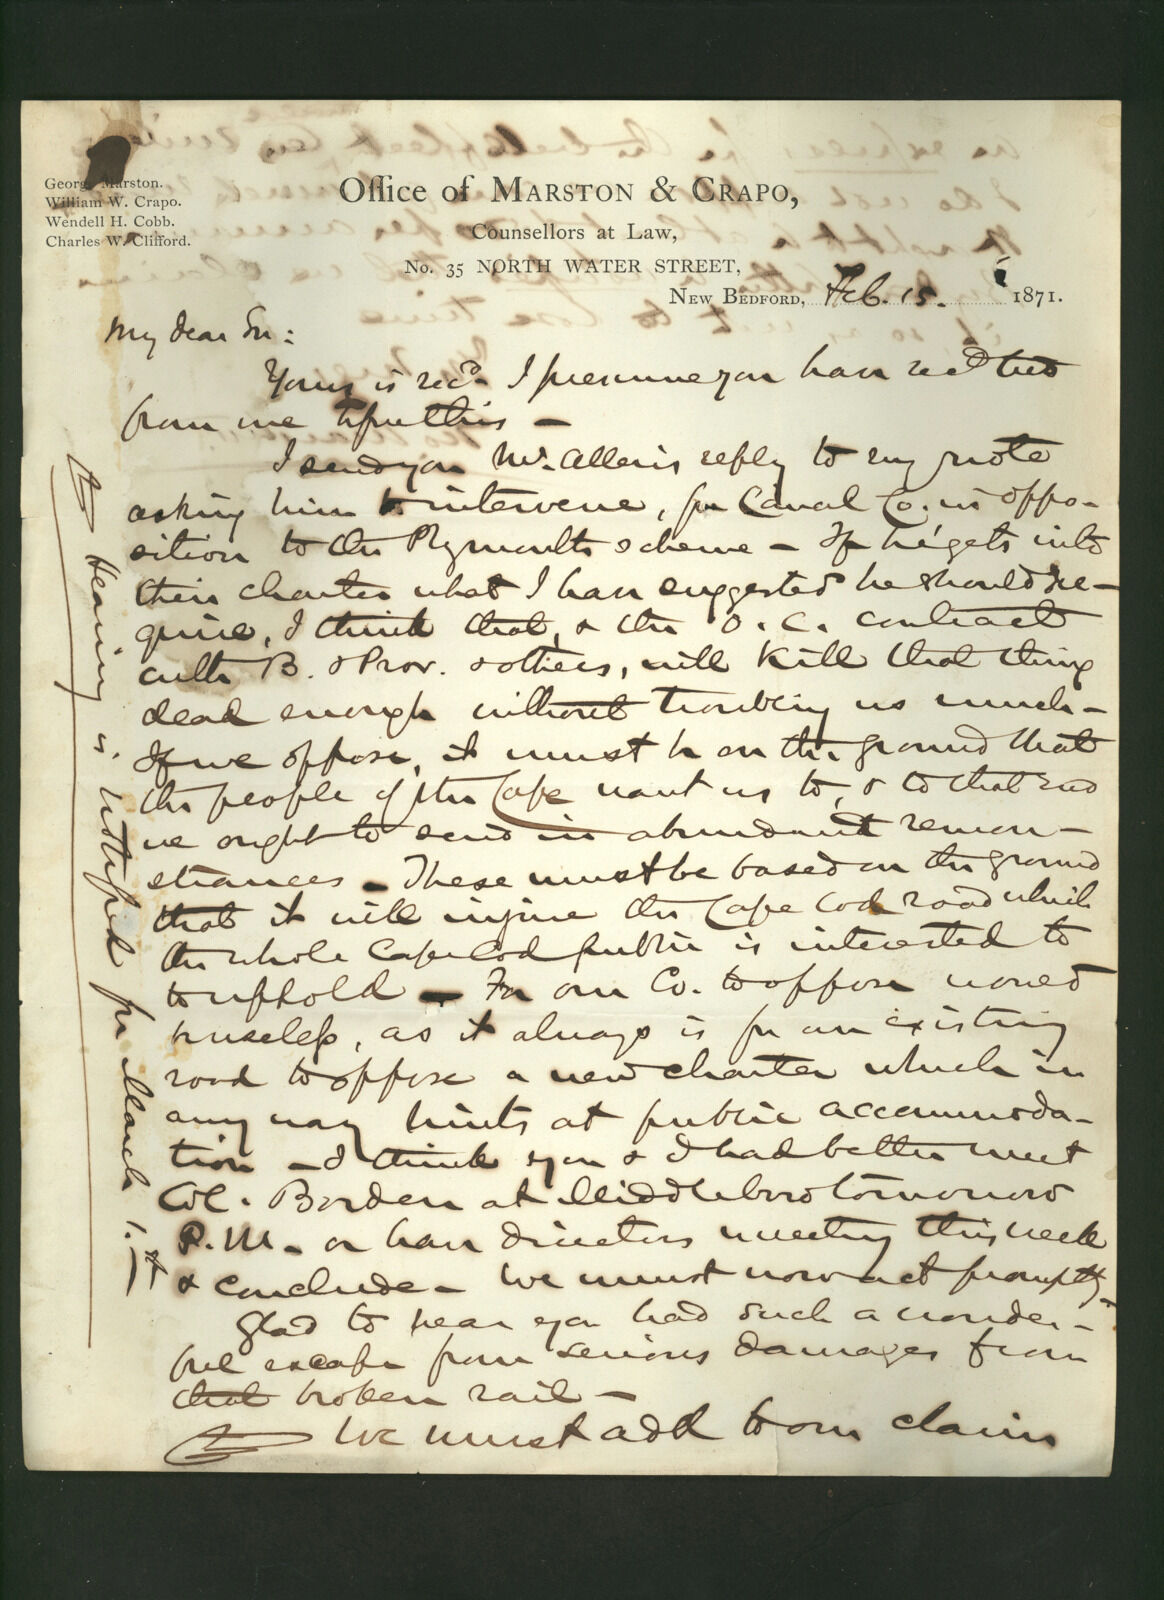 George Marston.
William W. Crapo.
Wendell H. Cobb.
Charles W. Clifford.
Office of MARSTON & CRAPO,
Counsellors at Law,
No. 35 NORTH WATER STREET,
NEW BEDFORD, Feb. 15. 1871.
My dear Sir:
Yours is recd. I presume you have recd two
from me before this —
I send you Mr. Allen's reply to my note
asking him to intervene, for Canal Co. in oppo-
sition to the Plymouth scheme — If he gets into
their charter what I have suggested he should re-
quire, I think that, & the O. C. contract
with B. & Prov. & others, will kill that thing
dead enough without troubling us much —
If we oppose, it must be on the ground that
the people of the Cape want us to, & to that end
we ought to send in abundant remon-
strances — These must be based on the ground
that it will injure the Cape Cod road which
the whole Cape Cod public is interested to
to uphold — For our Co. to oppose would
be useless, as it always is for an existing
road to oppose a new charter which in
any way hints at public accommoda-
tion — I think you & I had better meet
Col. Borden at Middleboro tomorrow
P.M. — or have directors meeting this week
& conclude — We must now act promptly —
Glad to hear you had such a wonder-
ful escape from serious damages from
that broken rail —
We must add to our claim
Hearing is notified for March 1.st